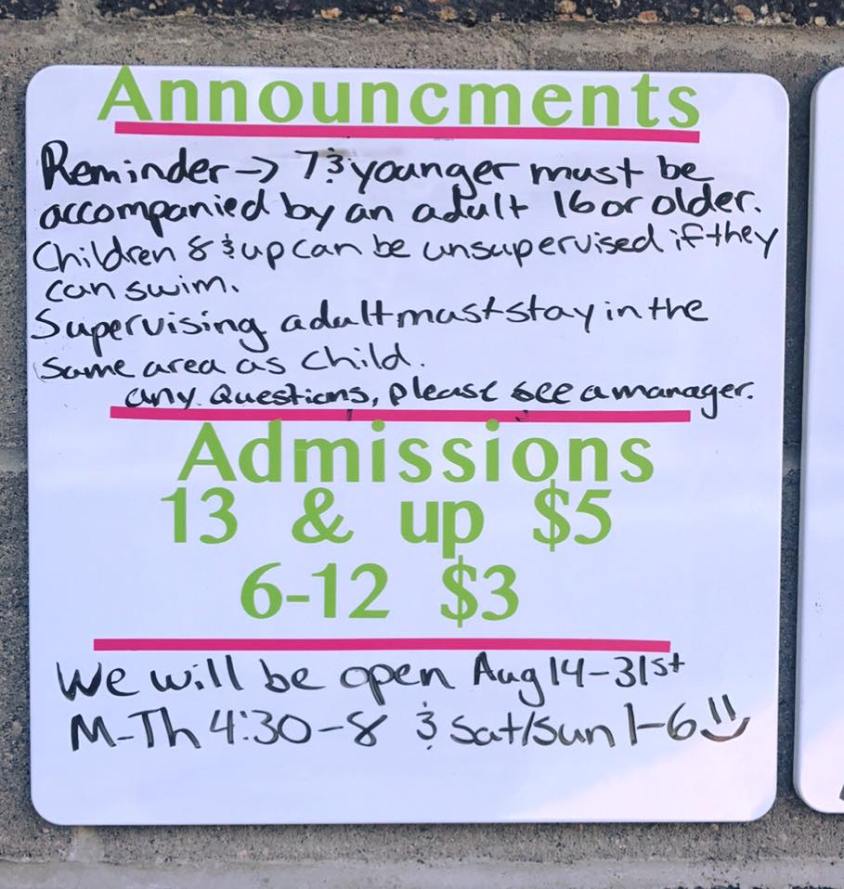 Announcments
Reminder → 7 & younger must be
accompanied by an adult 16 or older.
Children 8 & up can be unsupervised if they
can swim.
Supervising adult must stay in the
same area as child.
any questions, please see a manager.
Admissions
13 & up $5
6-12 $3
We will be open Aug 14-31st
M-Th 4:30-8 & Sat/Sun 1-6